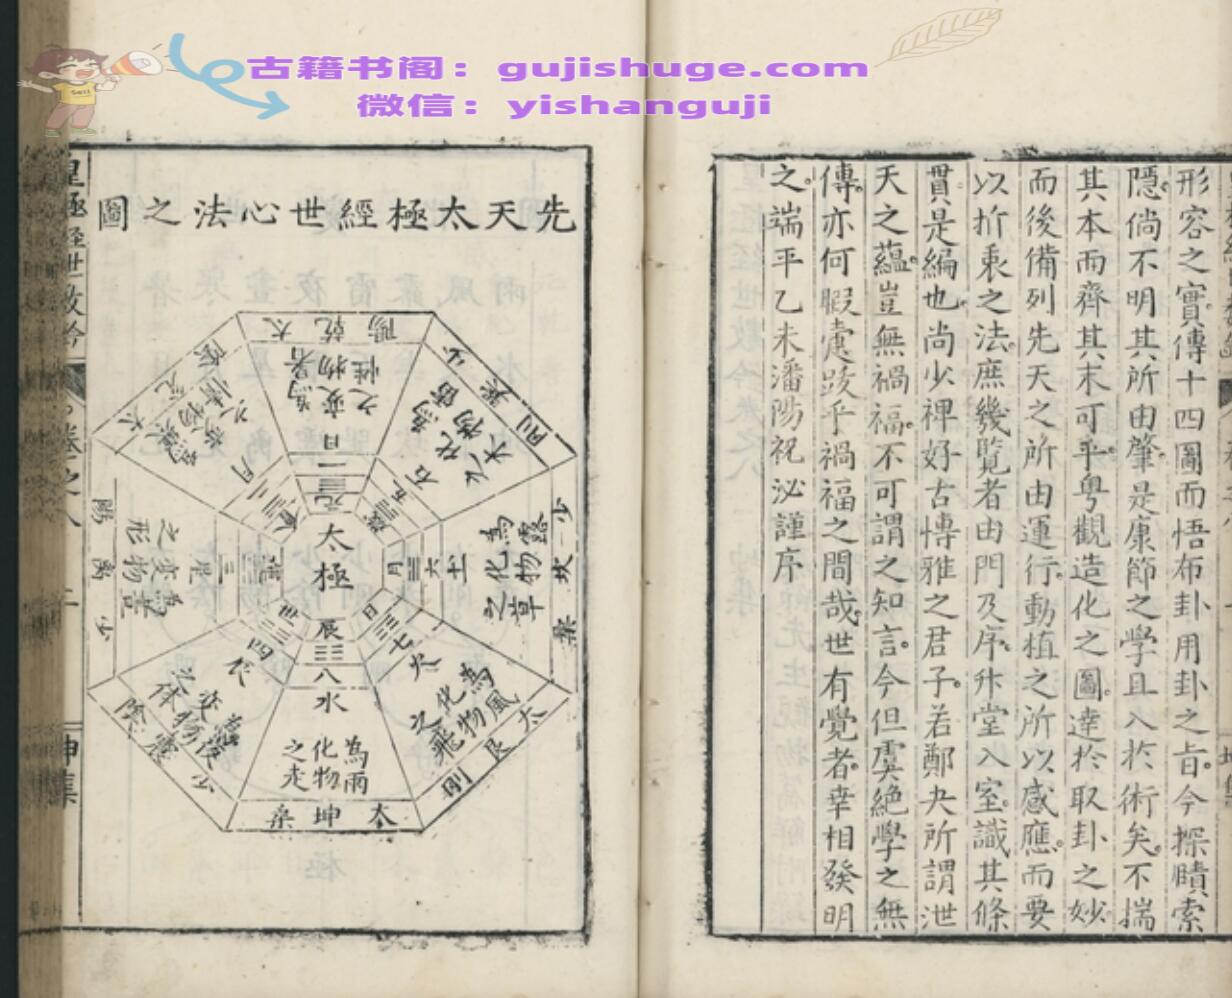 古籍书阁：gujishuge.com
微信：yishanguji
Sell
形容之實傳十四圖而悟布卦用卦之旨今探賾索
隱倘不明其所由肇是康節之學且入於術矣不揣
其本而齊其末可乎粤觀造化之圖達於取卦之妙
而後備列先天之所由運行動植之所以感應而要
以折衷之法庶幾覽者由門及序升堂入室識其條
貫是編也尚少裨好古博雅之君子若鄭夬所謂泄
天之蘊豈無禍福不可謂之知言今但虞絶學之無
傳亦何暇疐跋乎禍福之間哉世有覺者幸相發明
之端平乙未潘陽祝泌謹序
先天太極經世心法之圖
太極
太乾陽
為暑
變物
之性
日
一
元
少柔剛
為雷
化物
之木
石
五
少坎柔
為露
化物
之草
土
六
月
太艮剛
為風
化物
之飛
火
七
日
太坤柔
為雨
化物
之走
水
八
辰
少陰
為夜
變物
之体
辰
四
世
少离陽
為晝
變物
之形
星
三
運
月
皇極經世數鈐
卷之八
坤集